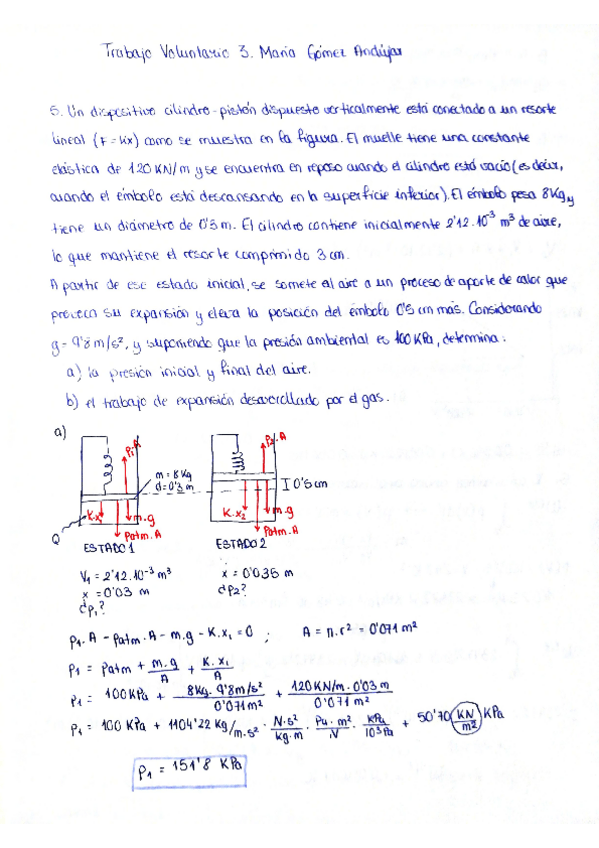 Trabajo Voluntario 3. María Gómez Andújar
5. Un dispositivo cilindro-pistón dispuesto verticalmente está conectado a un resorte
lineal (F = Kx) como se muestra en la figura. El muelle tiene una constante
elástica de 120 KN/m y se encuentra en reposo cuando el cilindro está vacío (es decir,
cuando el émbolo está descansando en la superficie inferior). El émbolo pesa 8Kg y
tiene un diámetro de 0'3 m. El cilindro contiene inicialmente 2'12.10⁻³ m³ de aire,
lo que mantiene el resorte comprimido 3 cm.
A partir de ese estado inicial, se somete el aire a un proceso de aporte de calor que
provoca su expansión y eleva la posición del émbolo 0'5 cm más. Considerando
g = 9'8 m/s², y suponiendo que la presión ambiental es 100 KPa, determina:
a) la presión inicial y final del aire.
b) el trabajo de expansión desarrollado por el gas.
a)
P₁.A
P₂.A
m = 8 Kg
d = 0'3 m
I 0'5 cm
K.x₁
m.g
K.x₂
m.g
Patm.A
Patm.A
Q
ESTADO 1
ESTADO 2
V₁ = 2'12.10⁻³ m³
x = 0'03 m
x = 0'035 m
¿P₁?
¿P₂?
P₁.A - Patm.A - m.g - K.x₁ = 0 ; A = π.r² = 0'071 m²
P₁ = Patm + m.g/A + K.x₁/A
P₁ = 100KPa + 8Kg.9'8m/s²/0'071m² + 120KN/m.0'03m/0'071m²
P₁ = 100 KPa + 1104'22 Kg/m.s² · N.s²/Kg.m · Pa.m²/N · KPa/10³Pa + 50'70 KN/m² KPa
P₁ = 151'8 KPa